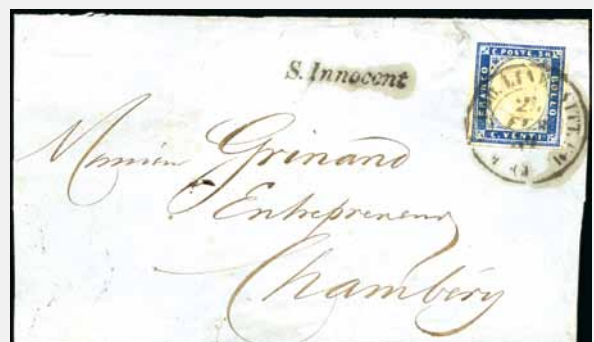 S. Innocent
C. POSTE 20
FRANCO
BOLLO
C. VENTI
Monsieur Grinand
Entrepreneur
Chambéry